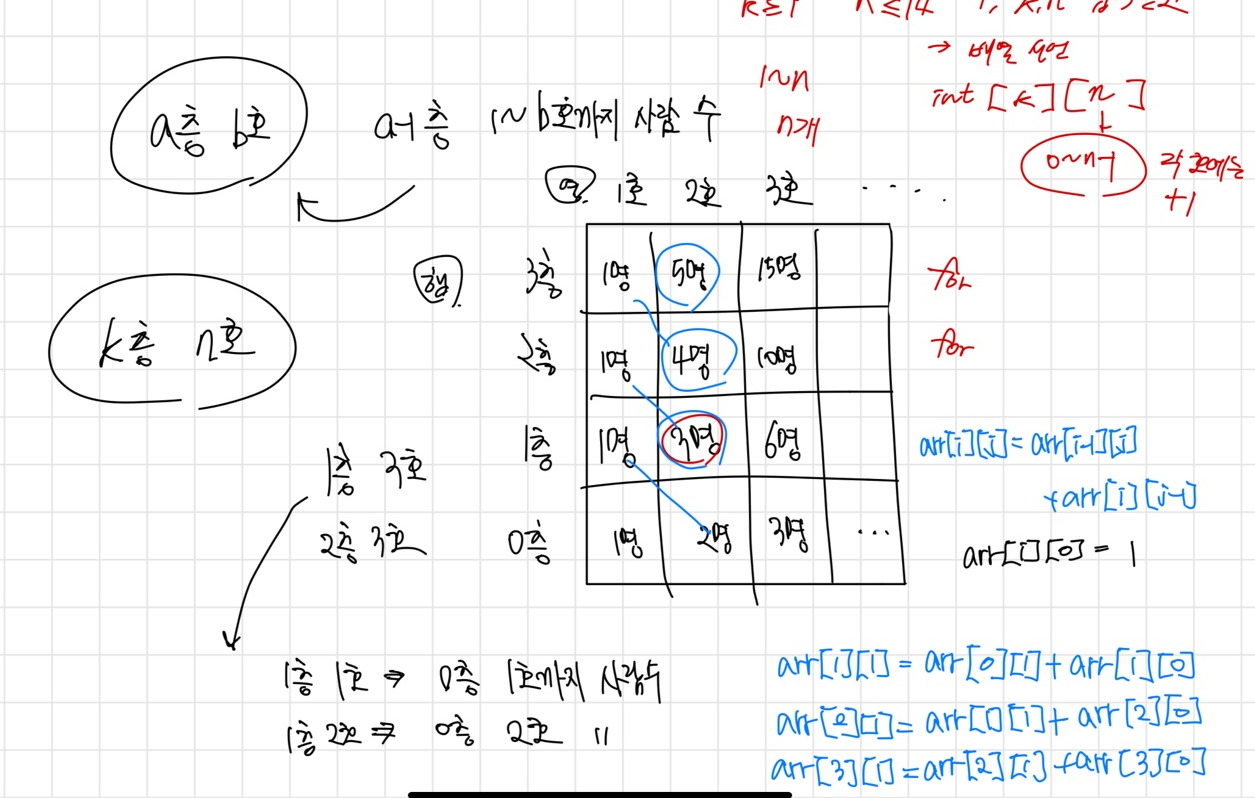 → 배열 선언
int [k][n]
0~n-1 각 호에는
+1
1~n
n개
a층 b호 a-1층 1~b호까지 사람 수
열 1호 2호 3호 . . . .
행 3층 1명 5명 15명 for
k층 n호
2층 1명 4명 10명 for
1층 1명 3명 6명
0층 1명 2명 3명 ...
1층 3호
2층 3호
arr[i][j]=arr[i-1][j]
+arr[i][j-1]
arr[i][0] = 1
1층 1호 ⇒ 0층 1호까지 사람수
1층 2호 ⇒ 0층 2호 〃
arr[1][1] = arr[0][1]+arr[1][0]
arr[2][1]=arr[1][1]+arr[2][0]
arr[3][1]=arr[2][1]+arr[3][0]